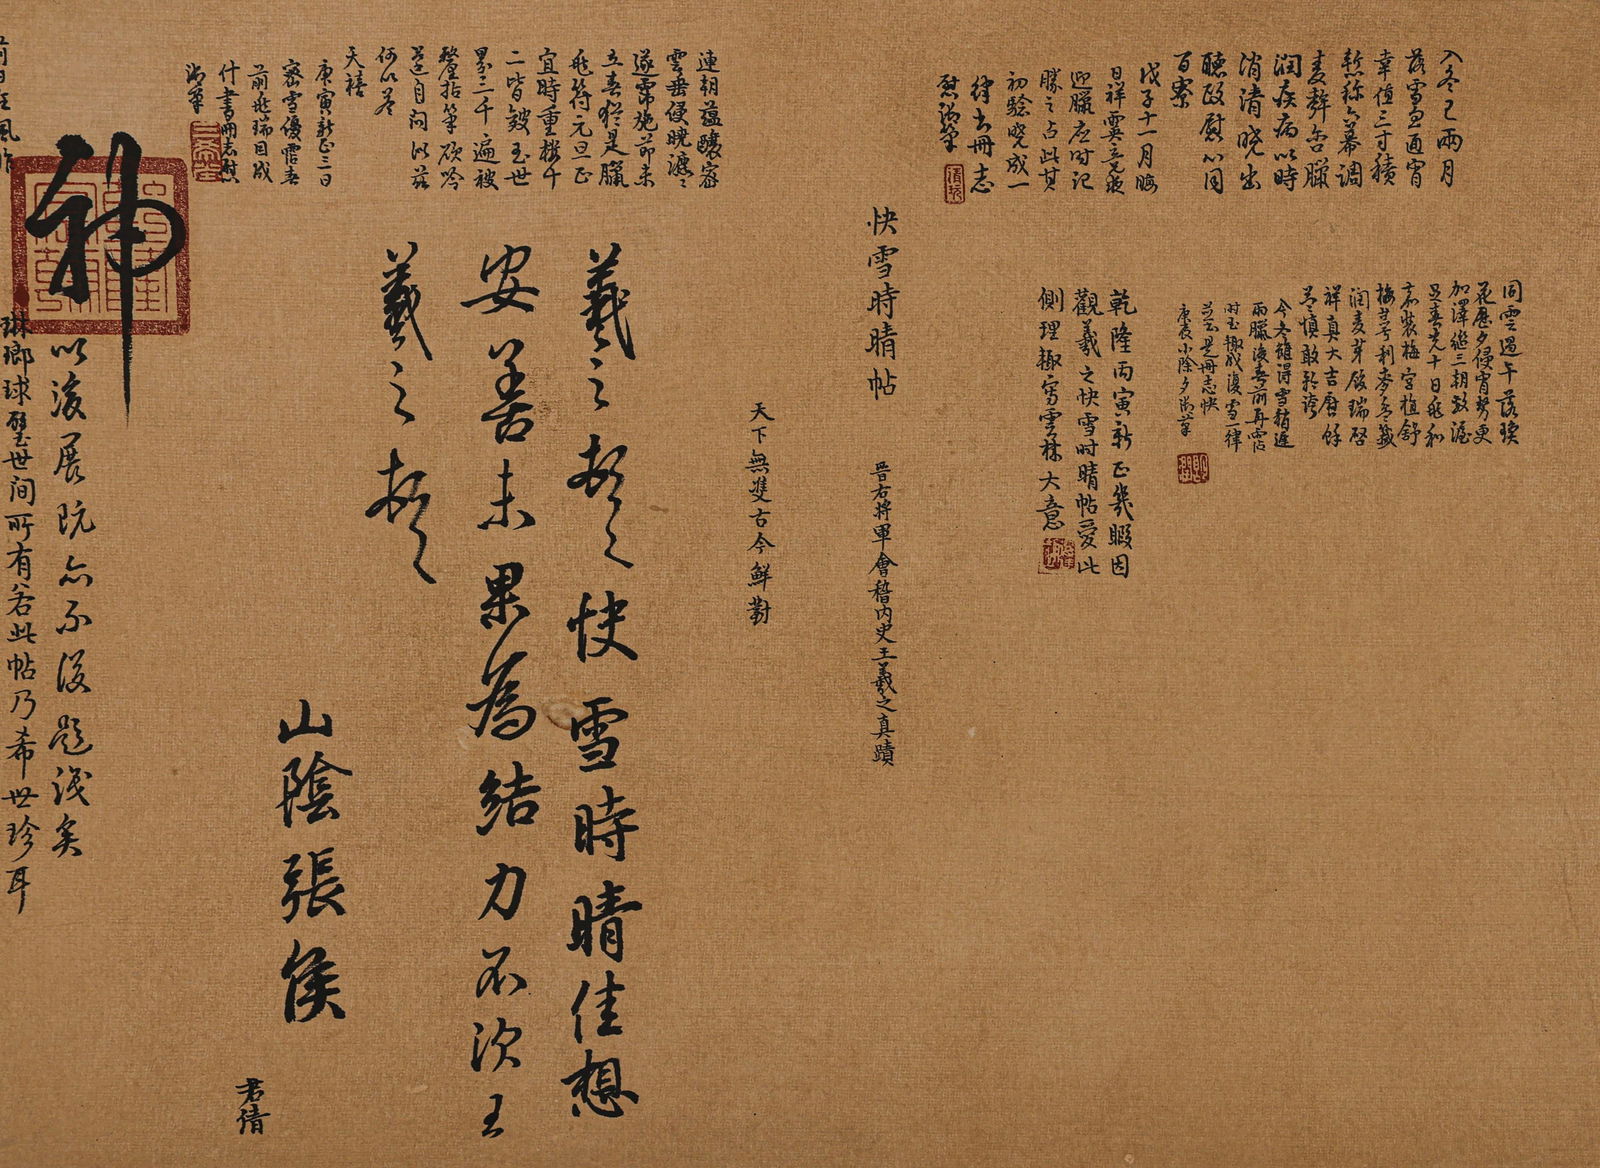 入冬已兩月
落雪兩通宵
幸值三寸積
慰稱六幕調
麦麰告臘
潤疾病以時
消清曉出
聽政慰以同
百寮
戊子十一月晦
日祥霙竟夜
迎臘應時記
勝之占此其
初驗曉成一
律書冊志
慰御筆
同雲過午落
花歷夕侵宵勢更
加澤繼三朝敷渥
足春先十日飛和
梅萼利麥
潤麦芽啟瑞
祥真大吉
益慎敢
今冬雖得雪稍遲
而臘後春前再霑
時玉輒成復雪一律
並書是冊志快
庚辰小除夕御筆
乾隆丙寅新正幾暇因
觀羲之快雪時晴帖愛此
側理輒寫雲林大意
快雪時晴帖
晉右將軍會稽內史王羲之真蹟
天下無雙古今鮮對
連朝蘊釀密
雲垂侵曉瀌瀌
遂霈施節未
立春猶是臘
飛符元旦正
宜時重樓千
二皆皴玉世
界三千遍被
釐拈筆欲吟
還自問以茲
何以答
天禧
庚寅新正三日
密雪優霑春
前飛瑞因成
什書冊志慰
御筆
羲之頓首快雪時晴佳想
安善未果為結力不次王
羲之頓首
山陰張侯
君倩
神
以後展玩亦不復題識矣
琳瑯球璧世間所有若此帖乃希世珍耳